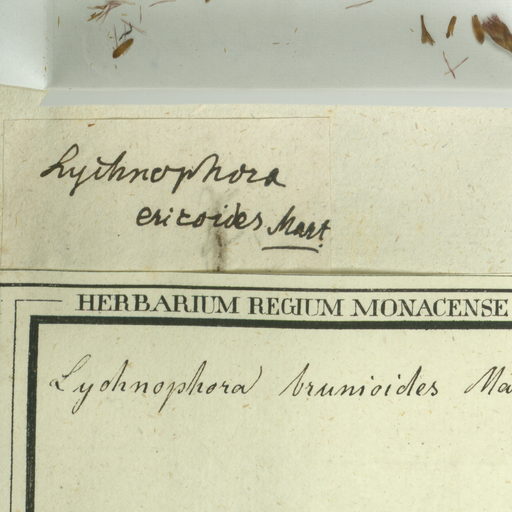 Lychnophora
ericoides Mart
HERBARIUM REGIUM MONACENSE
Lychnophora brunioides Ma